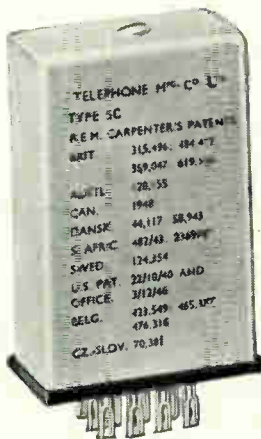 TELEPHONE Mᶠᴳ Cᵒ Lᵀᴰ
TYPE 5C
R.E.H. CARPENTER'S PATENTS
BRIT. 315,496;
369,047
AUSTL.
CAN. 1948
DANSK. 44,117 58,943
S. AFRIC. 482/43
SWED. 124,354
U.S. PAT. 22/10/40 AND
OFFICE. 3/12/46
BELG. 423,549
476,316
CZ.-SLOV. 70,381